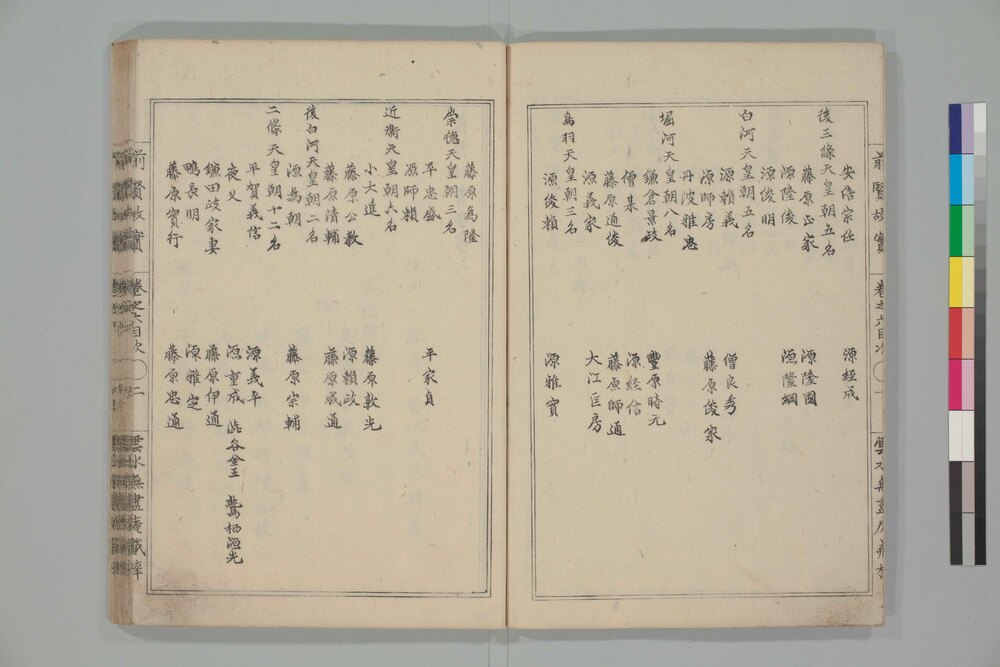 前賢故實
卷之六目次
後三條天皇朝五名
安倍宗任
源經成
藤原正家
源隆國
源隆俊
源隆綱
源俊明
白河天皇朝五名
源賴義
僧良秀
源師房
藤原俊家
丹波雅忠
堀河天皇朝八名
鎌倉景政
豐原時元
僧某
源經信
藤原通俊
藤原師通
源義家
大江匡房
鳥羽天皇朝三名
源俊賴
源雅實
藤原為隆
崇德天皇朝三名
平忠盛
平家貞
源師賴
近衞天皇朝六名
小大進
藤原敦光
藤原公教
源賴政
藤原清輔
藤原成通
後白河天皇朝二名
源為朝
藤原宗輔
二條天皇朝十二名
平賀義信
源義平
夜叉
源重成 澁谷金王 鷲栖源光
鎌田政家妻
藤原伊通
鴨長明
源雅定
藤原實行
藤原忠通
前賢故實
卷之六目次
二
雲水無盡庵藏梓